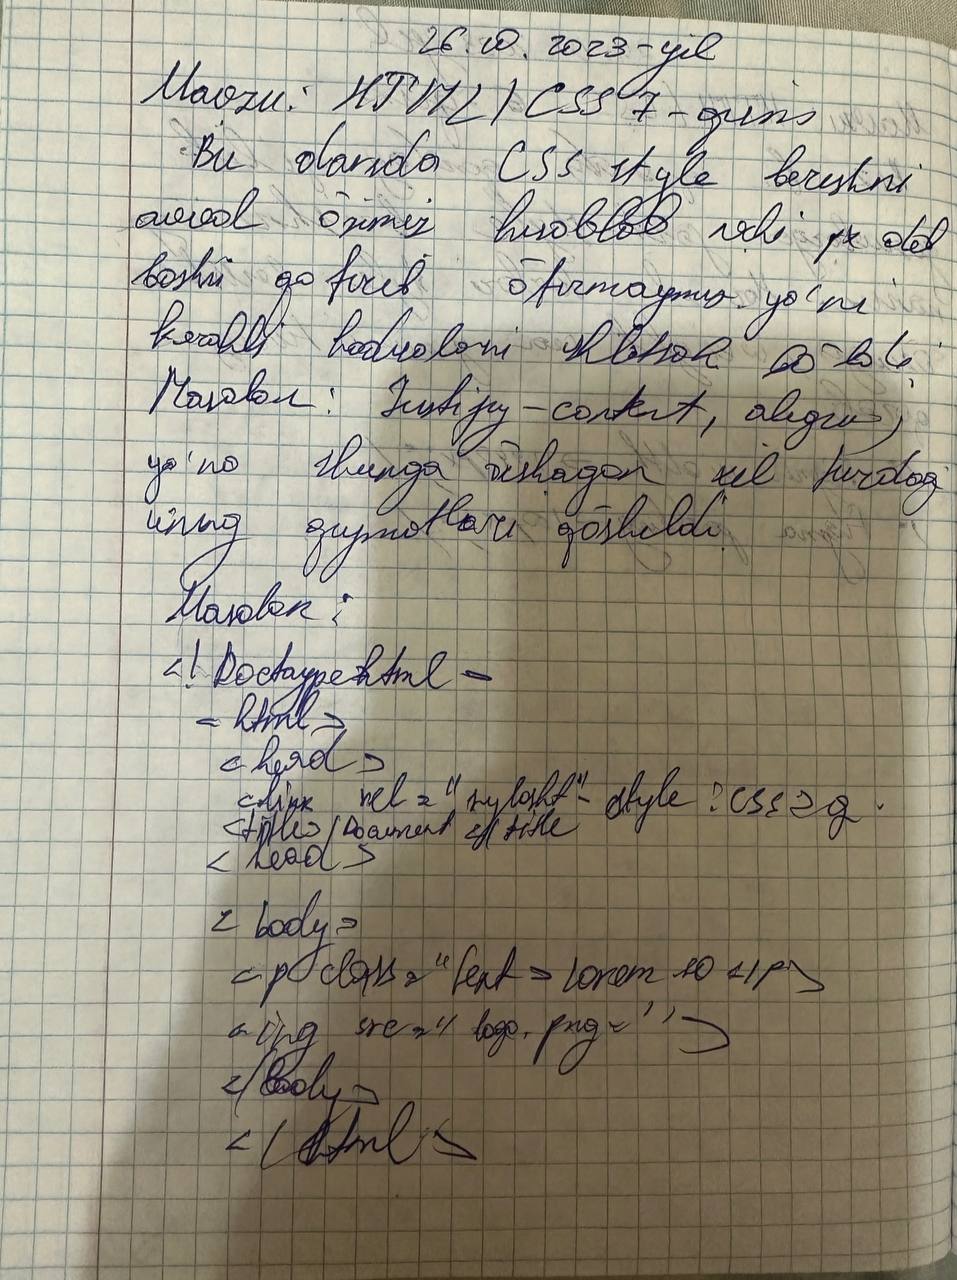 26.10.2023-yil
Mavzu: HTML / CSS 7-qism
Bu darsda CSS style berishni
avval özimiz hisoblab necha px deb
boshni qotirib ötirmaymiz ya'ni
kerakli hodisalarni ishlatsak bö'ladi
Masalan: Justify-content, align,
ya'na shunga öxshagan xil turdagi
uning qiymatlari qöshiladi
Masalan:
<! Doctaype html =
< html >
< head >
<link rel = "stylesht" style : css > g
<title> Document </ title
< head >
< body >
< p class = "text > Lorem 10 </p>
< ing src = " logo. png = '' >
</ body >
</ html >